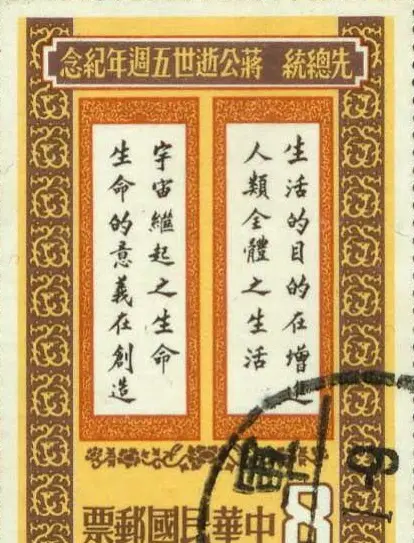 先總統 蔣公逝世五週年紀念
生活的目的在增進
人類全體之生活
生命的意義在創造
宇宙繼起之生命
中華民國郵票
8